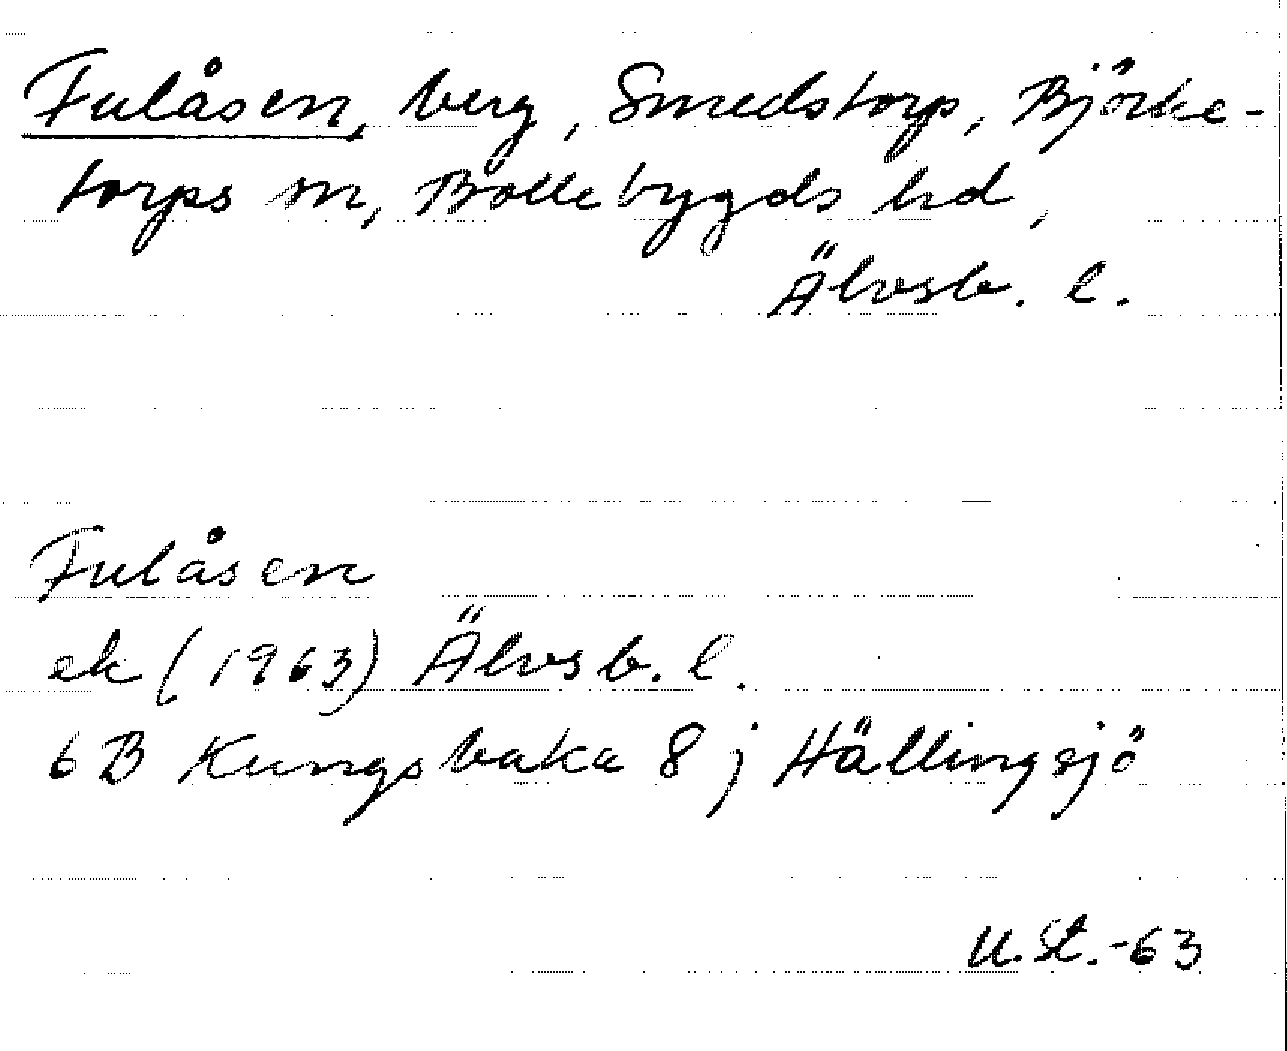 Fulåsen, berg, Smedstorp, Björke-
torps sn, Bollebygds hd,
Älvsb. l.
Fulåsen
ek (1963) Älvsb. l.
6 B Kungsbaka 8 j Hällingsjö
U.St.-63